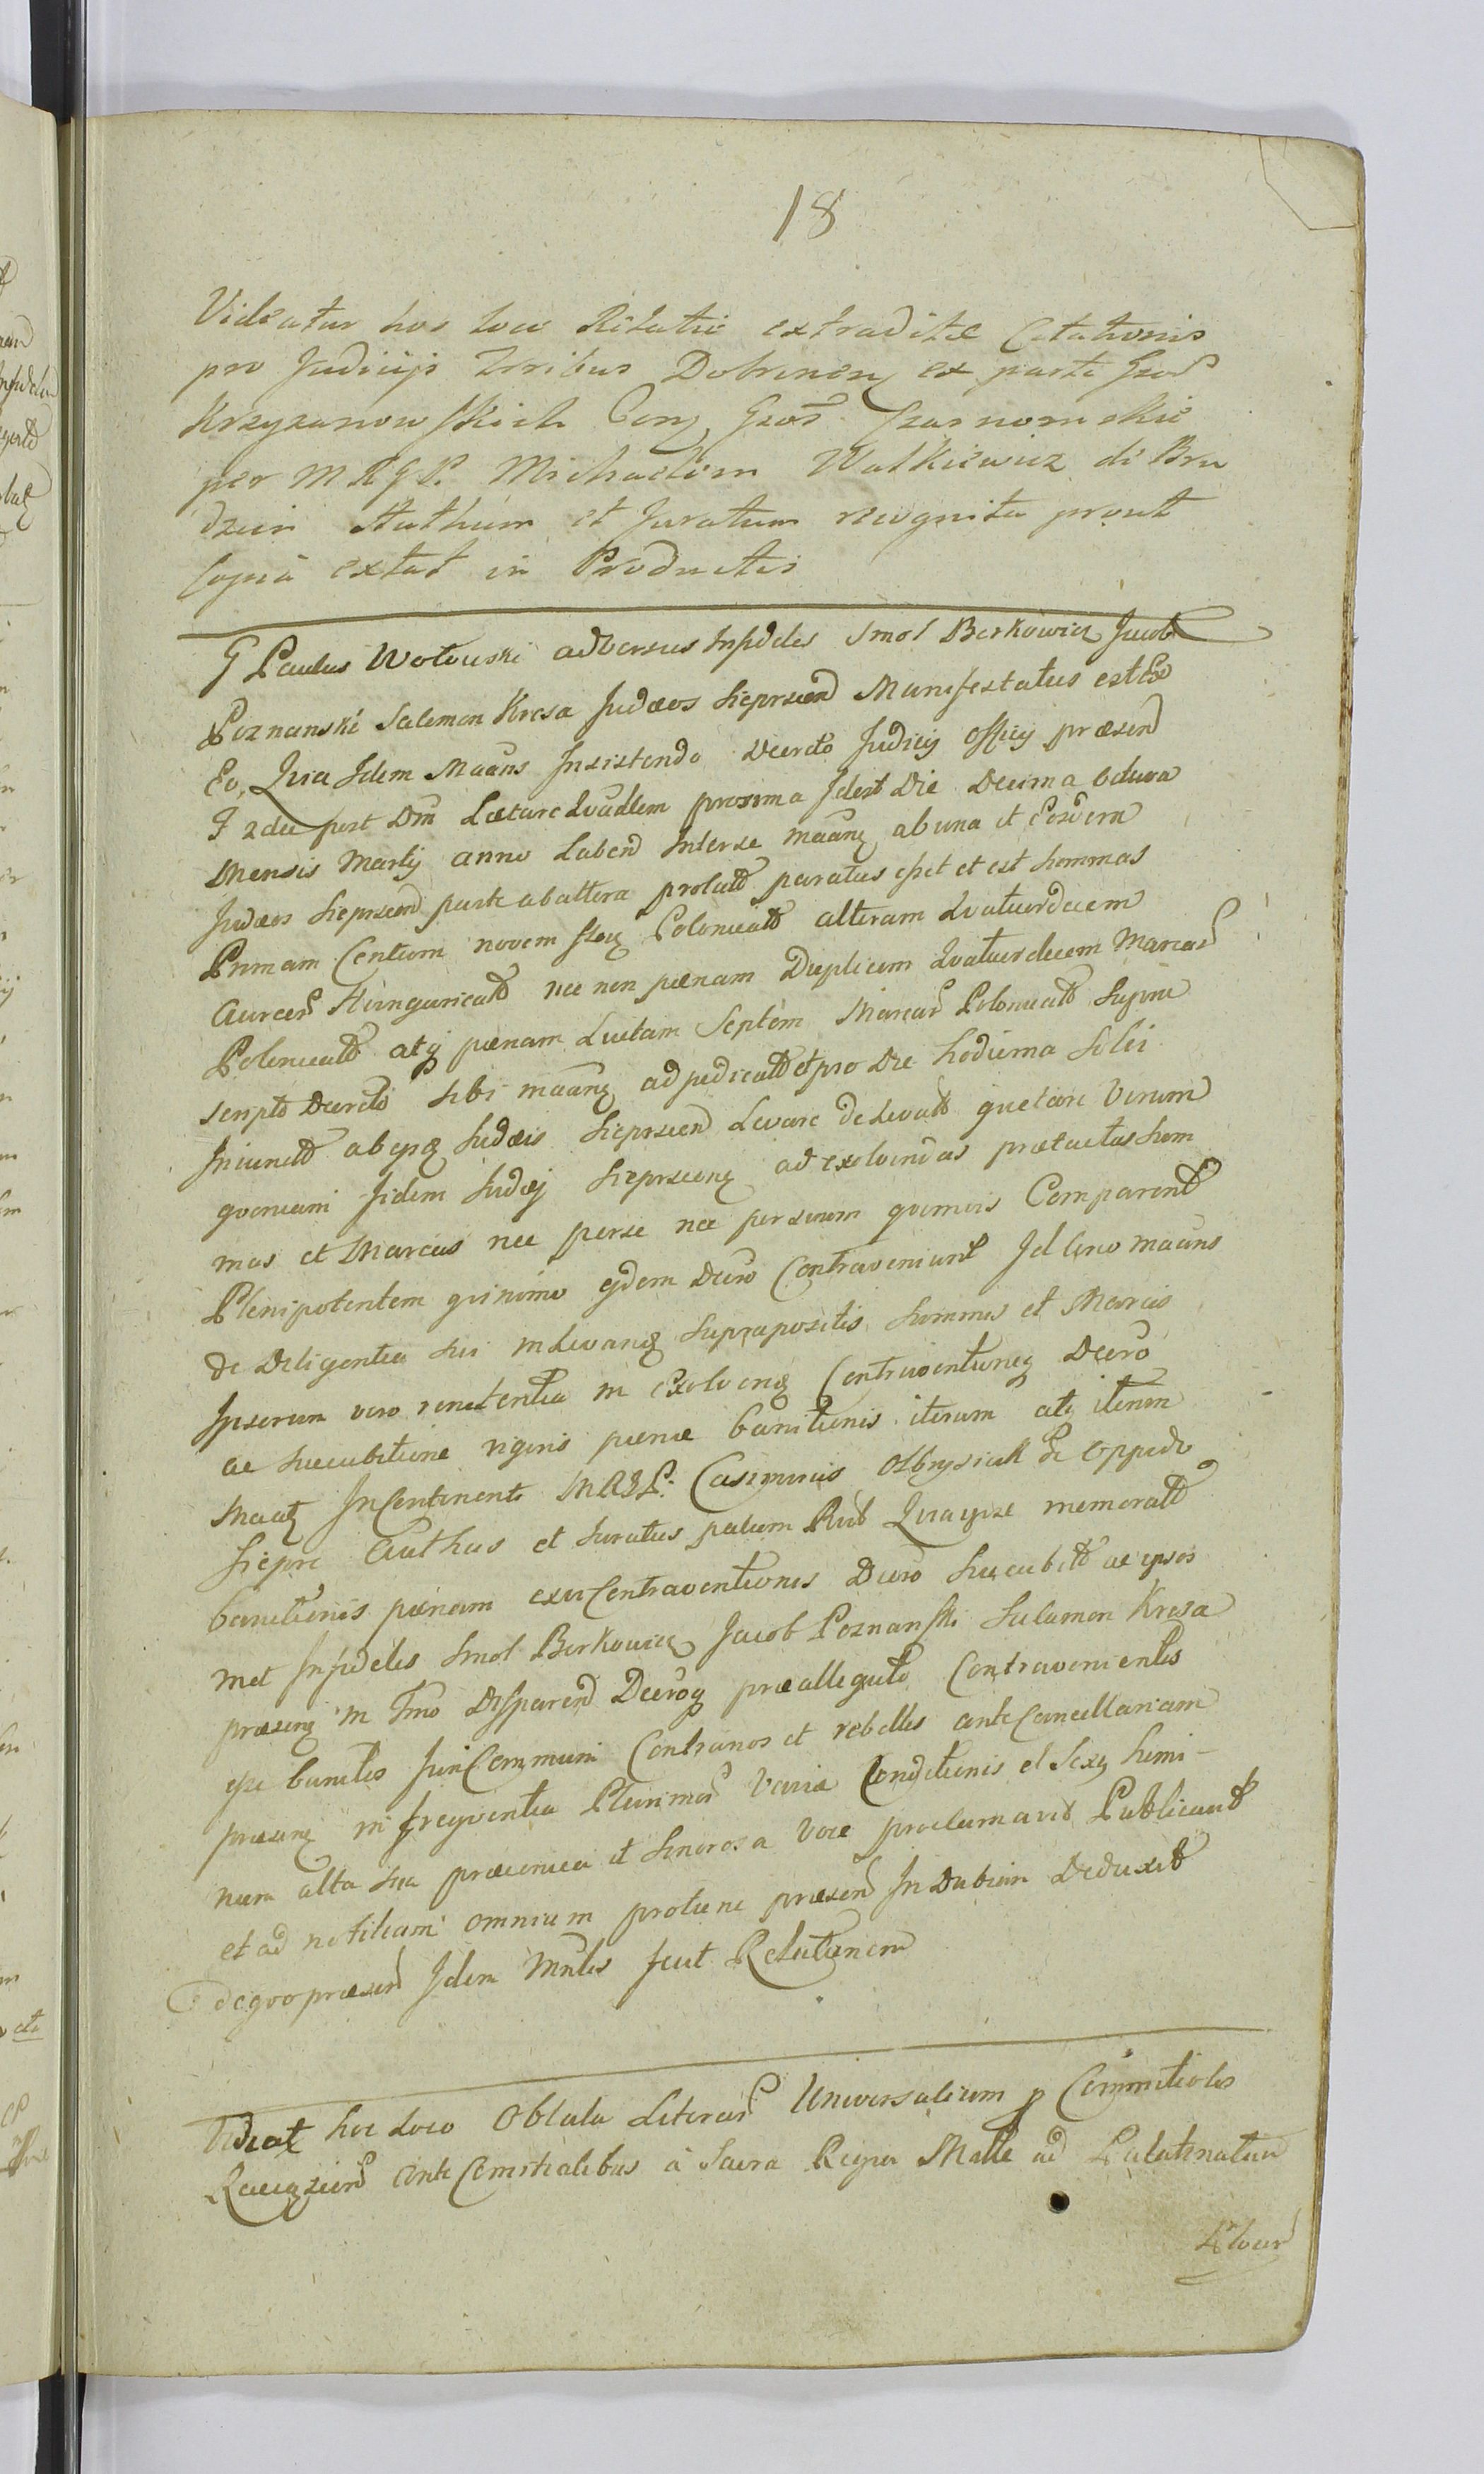 18
Videatur hos loco Relatio extraditæ Citationis
pro Judicijs Trribus Dobrinen ex parte Gsos
Krzyzanowskich Con Gsos Czarnomskie
per M R G P. Michaelem Walkiewicz di Bru
dzein Authum et Juratum recognita prout
Copia extat in Productis
G Paulus Wolowski adversus Infideles Smol Berkowicz Jacob
Poznanski Salomon Kresa Judæos Sieprscen Manifestatus est Ex
Eo, Quia Idem Maans Insistendo Decreto Judicij Officij præsen
F 2da post Dm Lætare Quadlem proxima Idest Die Decima Octava
Mensis Martij anno Laben Interse maan ab una et
Judæos Sieprscen parte ab altera prolato paratus esset et est Summas
Primam Centum novem Polonical alteram Quatuordecim
Aureor Hungarical nec non pænam Duplicem Quatuordecem Marcar
Polonical atq pænam Luitam Septem Marcar Polonical Supra
scripto Decreto sibi maan adjudical et pro Die hodierna Solvi
Injunct ab ipsis Judæis Sieprscen Levare de Levatis quietare Verum
quoniam Iidem Judæi Sieprscen ad exolvendas prætactas Sum
mas et Marcas nec per se nec per suum quemvis Comparent
Plenipotentem quinimo ejdem Decro Contraveniunt Id Circo maans
de Diligentia sui in Levan Suprapositis Summis et Marcis
Ipsorum vero renitentia in Exolven Contraventioneq Decro
ac Succubitione rigoris pænæ banitionis iterum atq iterum
Maat In Continenti M R G P. Casimirus Olbrysiak de Oppido
Siepre Authus et Juratus palam Rnt Quaipse memorat
banitionis pænam exvi Contraventionis Decro Succubit ac ipsos
met Infideles Smol Berkowicz Jacob Poznanski Salamon Kresa
præsen in Tmo Disparen Decroq præallegato Contravenientes
esse banitos Juri Communi Contrarios et rebelles ante Cancellariam
præsen in frequentia Plurimor Variæ Conditionis et Sexq homi-
num alta sua præconica et Sonorosa voce proclamavit Publicavit
et ad notitiam omnium protunc præsen In Dubium Deduxit
de quo præsen Idem Mnlis fecit Relationem
Videat hoc Loco Oblata Literar Universalium p Commitiolis
Raciazien ante Comitialibus à Sacra Regia Matte ad Palatinatum